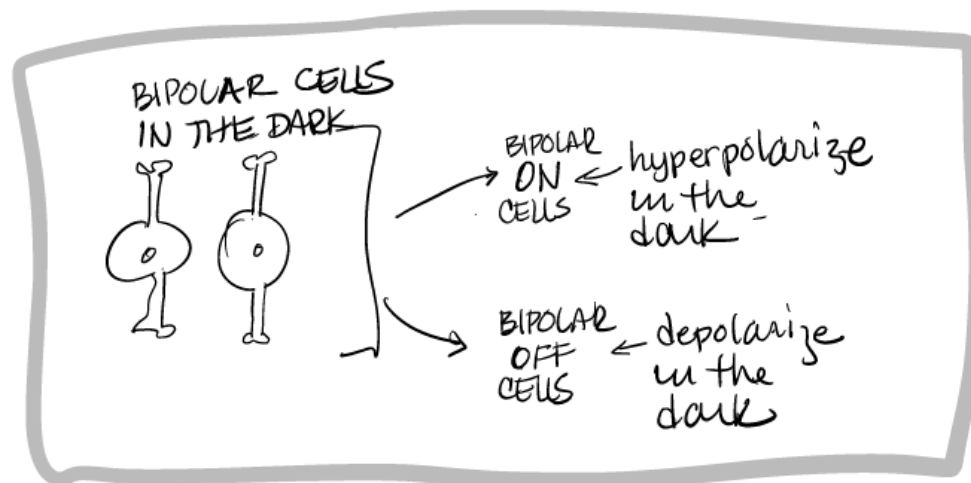 BIPOLAR CELLS
IN THE DARK
BIPOLAR
ON
CELLS
hyperpolarize
in the
dark
BIPOLAR
OFF
CELLS
depolarize
in the
dark